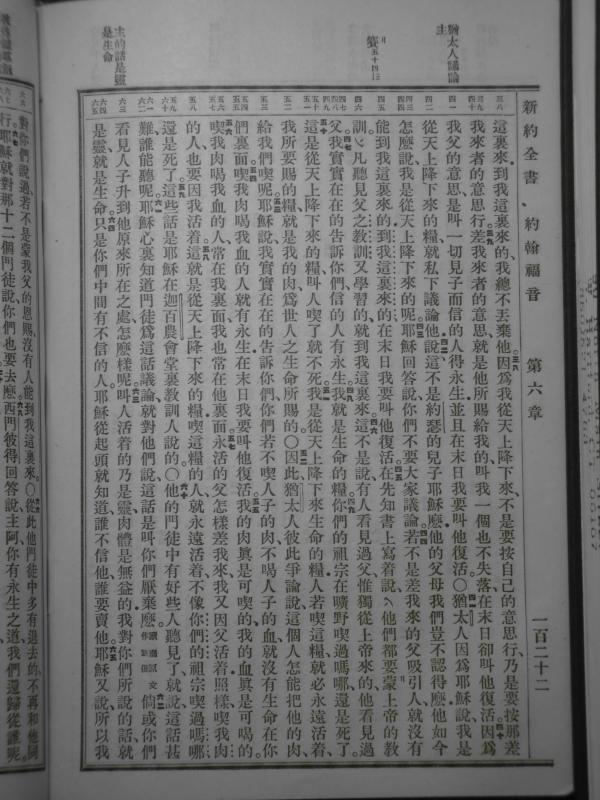 新約全書　約翰福音　第六章　一百二十二
猶太人議論主
賽五十四13
主的話是靈是生命
這裏來的到我這裏來的我總不丟棄他因爲我從天上降下來不是要按自己的意思行乃是要按那差
我來者的意思行差我來者的意思就是他所賜給我的叫我一個也不失落在末日卻叫他復活因爲
我父的意思是叫一切見子而信的人得永生並且在末日我要叫他復活〇猶太人因爲耶穌說我是
從天上降下來的糧就私下議論他說這不是約瑟的兒子耶穌麽他的父母我們豈不認得麽他如今
怎麽說我是從天上降下來的呢耶穌回答說你們不要大家議論若不是差我來的父吸引人就沒有
能到我這裏來的到我這裏來的在末日我要叫他復活在先知書上寫着說他們都要蒙上帝的教
訓凡聽見父之教訓又學習的就到我這裏來這不是說有人看見過父惟獨從上帝來的他看見過
父我實實在在的告訴你們信的人有永生我就是生命的糧你們的祖宗在曠野喫過嗎哪還是死了
這是從天上降下來的糧叫人喫了就不死我是從天上降下來生命的糧人若喫這糧就必永遠活着
我所要賜的糧就是我的肉爲世人之生命所賜的〇因此猶太人彼此爭論說這個人怎能把他的肉
給我們喫呢耶穌說我實實在在的告訴你們你們若不喫人子的肉不喝人子的血就沒有生命在你
們裏面喫我肉喝我血的人就有永生在末日我要叫他復活我的肉眞是可喫的我的血眞是可喝的
喫我肉喝我血的人常在我裏面我也常在他裏面永活的父怎樣差我來我又因父活着照樣喫我肉
的人也要因我活着這就是從天上降下來的糧喫這糧的人就永遠活着不像你們的祖宗喫過嗎哪
還是死了這些話是耶穌在迦百農會堂裏教訓人說的〇他的門徒中有好些人聽見了就說這話甚
難誰能聽呢耶穌心裏知道門徒爲這話議論就對他們說這話是叫你們厭棄麽倘或你們
看見人子升到他原來所在之處怎麽樣呢叫人活着的乃是靈肉體是無益的我對你們所說的話就
是靈就是生命只是你們中間有不信的人耶穌從起頭就知道誰不信他誰要賣他耶穌又說所以我
對你們說過若不是蒙我父的恩賜沒有人能到我這裏來〇從此他門徒中多有退去的不再和他同
行耶穌就對那十二個門徒說你們也要去麽西門彼得回答說主阿你有永生之道我們還歸從誰呢